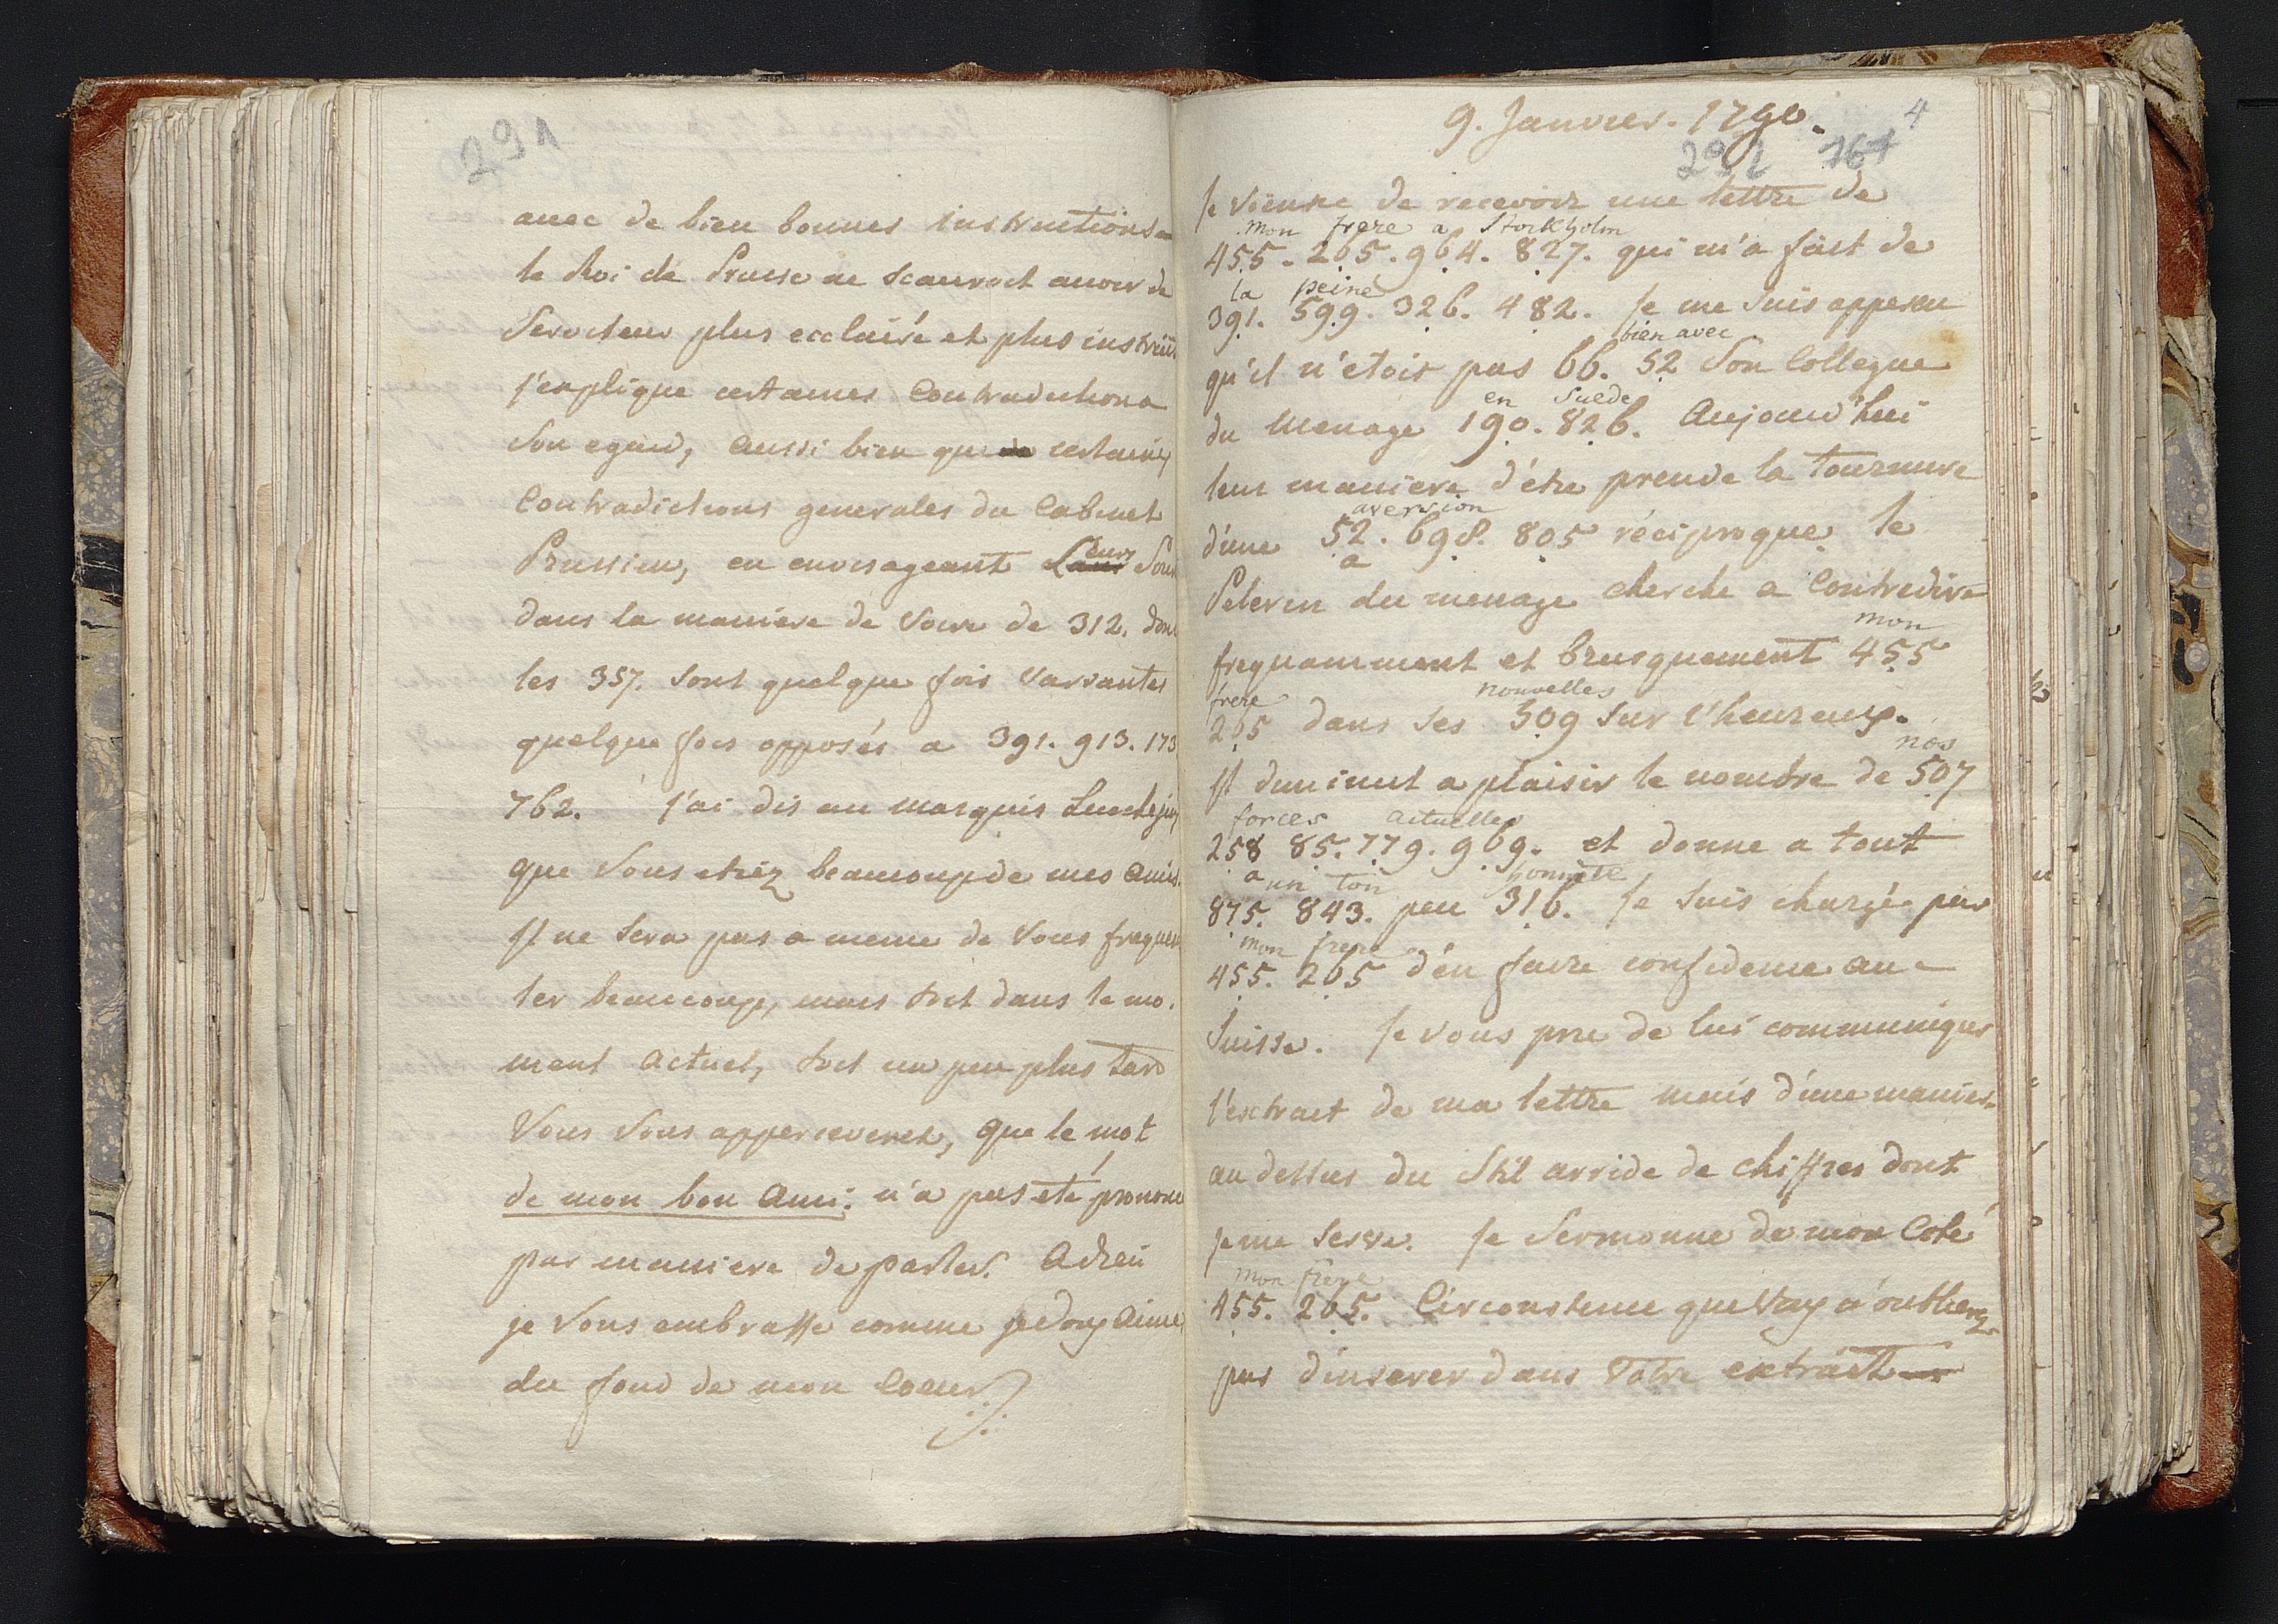 291
avec de bien bonnes instructions
le Roi de Prusse ne scauroit avoir de
Serviteur plus ecclairé et plus instruit
j'explique certaines Contradictions a
Son egard, aussi bien que certaines
Contradictions generales du Cabinet
Prussien, en envisageant Leurs
dans la maniere de Voire de 312. dont
les 357. sont quelque fois Variantes
quelque fois opposés a 391. 913. 173
762. j'ai dis au marquis Luchesiny
que Vous etiéz beaucoup de mes amis.
Il ne sera pas a meme de Vous frequen
ter beaucoup, mais soit dans le mo.
ment actuel, soit un peu plus tard
Vous Vous appercevered, que le mot
de mon bon ami: n'a pas eté prononc
par maniere de parler. Adieu
je Vous embrasse comme je Vous aime
du fond de mon Coeur
9. Janvier. 1790.
4
292 167
Je vienne de recevoir une lettre de
mon frere a Stockholm
455. 265. 964. 827. qui m'a fait de
la peine
391. 599. 326. 482. Je me suis apperçu
bien avec
qu'il n'etoit pas 66. 52 Son Collegue
en Suede
du Menage 190. 826. Aujourd'hui
leur maniere d'étre prende la tournure
aversion
d'une 52. 698. 805 réciproque. le
a
Pelerin du menage cherche a Contredire
mon
frequamment et brusquement 455
frere nouvelles
265 dans ses 509 sur l'heureux.
nos
Il diminut a plaisir le nombre de 507
forces actuelles
258 85. 779. 969. et donne a tout
a un ton honnete
875. 843. peu 316. Je suis chargé par
mon frere
455. 265 d'en faire confidence au
Suisse. Je vous prie de lui communiquer
l'extrait de ma lettre mais d'une manier
au dessus du Stil arride de chiffres dont
je me serve. Je Sermonne de mon Coté
mon frere
455. 265. Circonstence que Vous n'oublierez
pas d'inserer dans Votre extrait